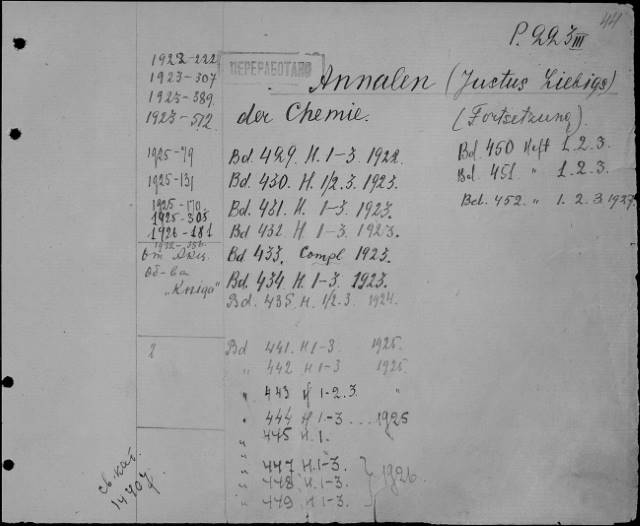 44
P. 223 III
ПЕРЕРАБОТАНО
Annalen (Justus Liebigs)
der Chemie. (Fortsetzung).
1922-222
1923-307
1923-389
1923-512
1925-79
1925-131
1925-170
1925-305
1926-181
От Акц.
Об-ва
"Книга"
2
Bd. 429. H. 1-3. 1922.
Bd. 430. H. 1/2.3. 1923.
Bd. 431. H. 1-3. 1923.
Bd 432. H 1-3. 1923.
Bd. 433. Compl 1923.
Bd. 434. H. 1-3. 1923.
Bd. 435. H. 1/2.3. 1924.
Bd 441. H 1-3. 1925.
" 442 H 1-3 1925.
" 443 H 1-2.3. "
" 444 H 1-3. ... 1925
" 445 H. 1.
" 447 H. 1-3.
" 448 H. 1-3. } 1926.
" 449 H. 1-3.
Bd. 450 Heft 1.2.3.
Bd. 451 " 1.2.3.
Bd. 452. " 1.2.3 1927.
св. кат.